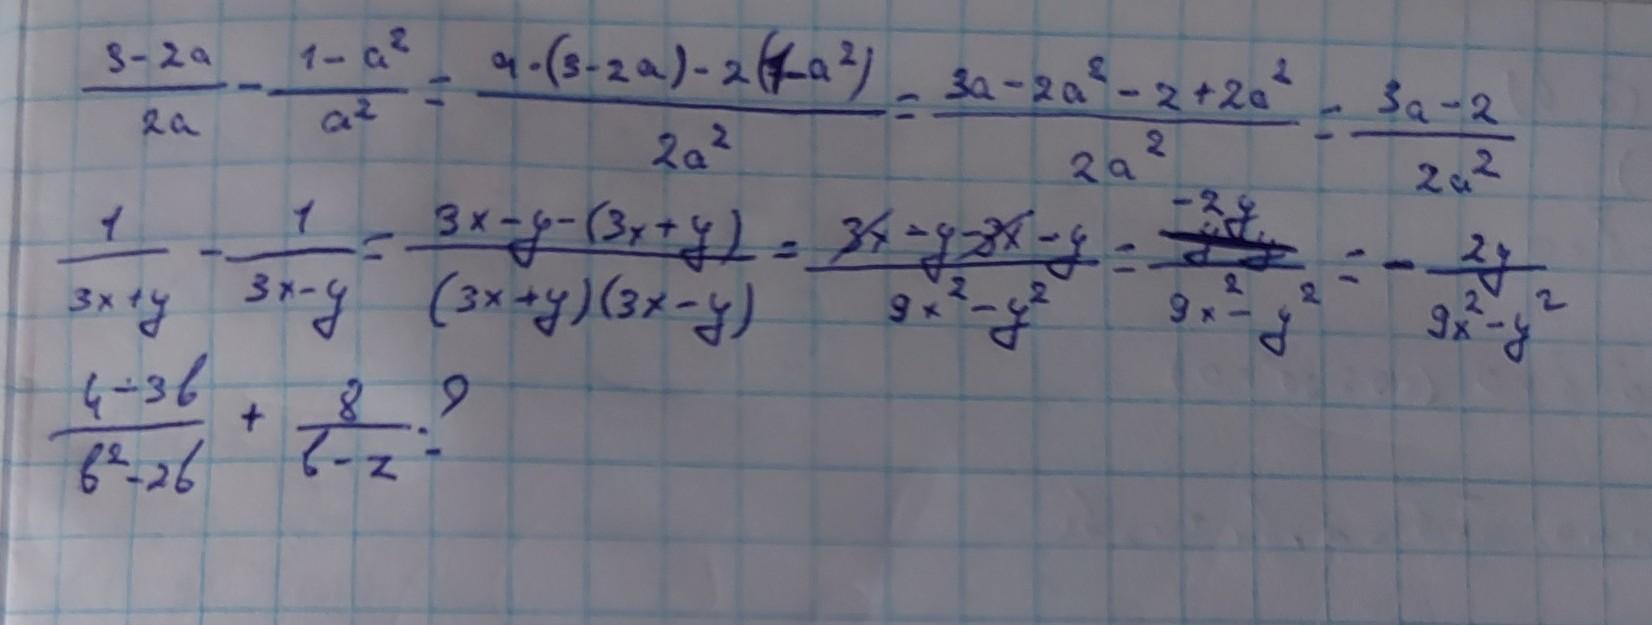 (3-2a)/(2a) - (1-a²)/(a²) = (a·(3-2a)-2(1-a²))/(2a²) = (3a-2a²-2+2a²)/(2a²) = (3a-2)/(2a²)
1/(3x+y) - 1/(3x-y) = (3x-y-(3x+y))/((3x+y)(3x-y)) = (3x-y-3x-y)/(9x²-y²) = (-2y)/(9x²-y²) = - (2y)/(9x²-y²)
(4-3b)/(b²-2b) + 8/(b-2) = ?